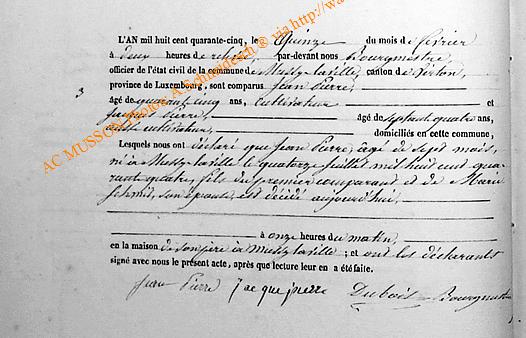 L'AN mil huit cent quarante-cinq, le quinze du mois de février
à deux heures de relevée, par-devant nous Bourgmestre,
officier de l'état civil de la commune de Mussy-la-ville, canton de Virton,
3 province de Luxembourg, sont comparus Jean Pierre,
âgé de quarante cinq ans, cultivateur et
Jacques Pierre, âgé de septante quatre ans,
cultivateur, domiciliés en cette commune,
Lesquels nous ont déclaré que Jean Pierre, agé de sept mois,
né à Mussy-la-ville le quatorze juillet mil huit cent qua-
rante-quatre, fils du premier comparant et de Marie
Schmit, son épouse, est décédé aujourd'hui,
à onze heures du matin,
en la maison de son père à Mussy-la-ville; et ont les déclarants
signé avec nous le présent acte, après que lecture leur en a été faite.
Jean Pierre Jacque pierre Dubois Bourgmestre
AC MUSSON Photos: A.Schneidesch ® via http://wa